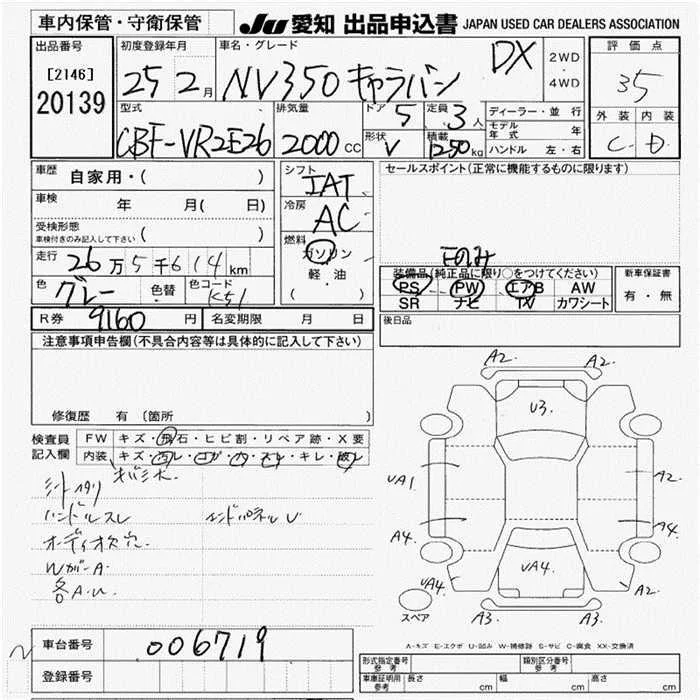 車内保管・守衛保管
JU 愛知 出品申込書 JAPAN USED CAR DEALERS ASSOCIATION
出品番号
[2146]
20139
初度登録年月
25 2月
車名・グレード
NV350 キャラバン DX
2WD
・
4WD
評価点
35
外装 内装
C D
型式
CBF-VR2E26
排気量
2000 CC
ドア 5
定員 3人
形状 V
積載 1250 kg
ディーラー・並行
モデル年式 年
ハンドル 左・右
車歴
自家用・( )
車検
年 月( 日)
受検形態
車検付きのみ記入して下さい ( )
走行 26万5千614km
色 グレー 色替 色コード K51
R券 9160 円 名変期限 月 日
シフト
IAT
冷房
AC
燃料
ガソリン
軽・油
( )
セールスポイント(正常に機能するものに限ります)
Fのみ
装備品(純正品に限り○をつけてください)
PS PW エアB AW
SR ナビ TV カワシート
新車保証書
有・無
後日品
注意事項申告欄(不具合内容等は具体的に記入して下さい)
修復歴 有〔箇所
検査員
記入欄
FW キズ・飛石・ヒビ割・リペア跡・X要
内装 キズ・汚レ・コゲ・穴・スレ・キレ・破レ
シートヘタリ
ハンドルスレ
エンドパネルU
オーディオ欠穴
WガラーA
各A.U
車台番号 006719
登録番号
A2. A2.
U3.
UA1 A2
A4. A4.
UA4. UA4. A2
A3 A3
スペア
A-キズ E-エクボ U-凹み W-補修跡 S-サビ C-腐食 XX-交換済
形式指定番号 参考
類別区分番号 参考
車庫証明用 参考 長さ cm 幅 cm 高さ cm